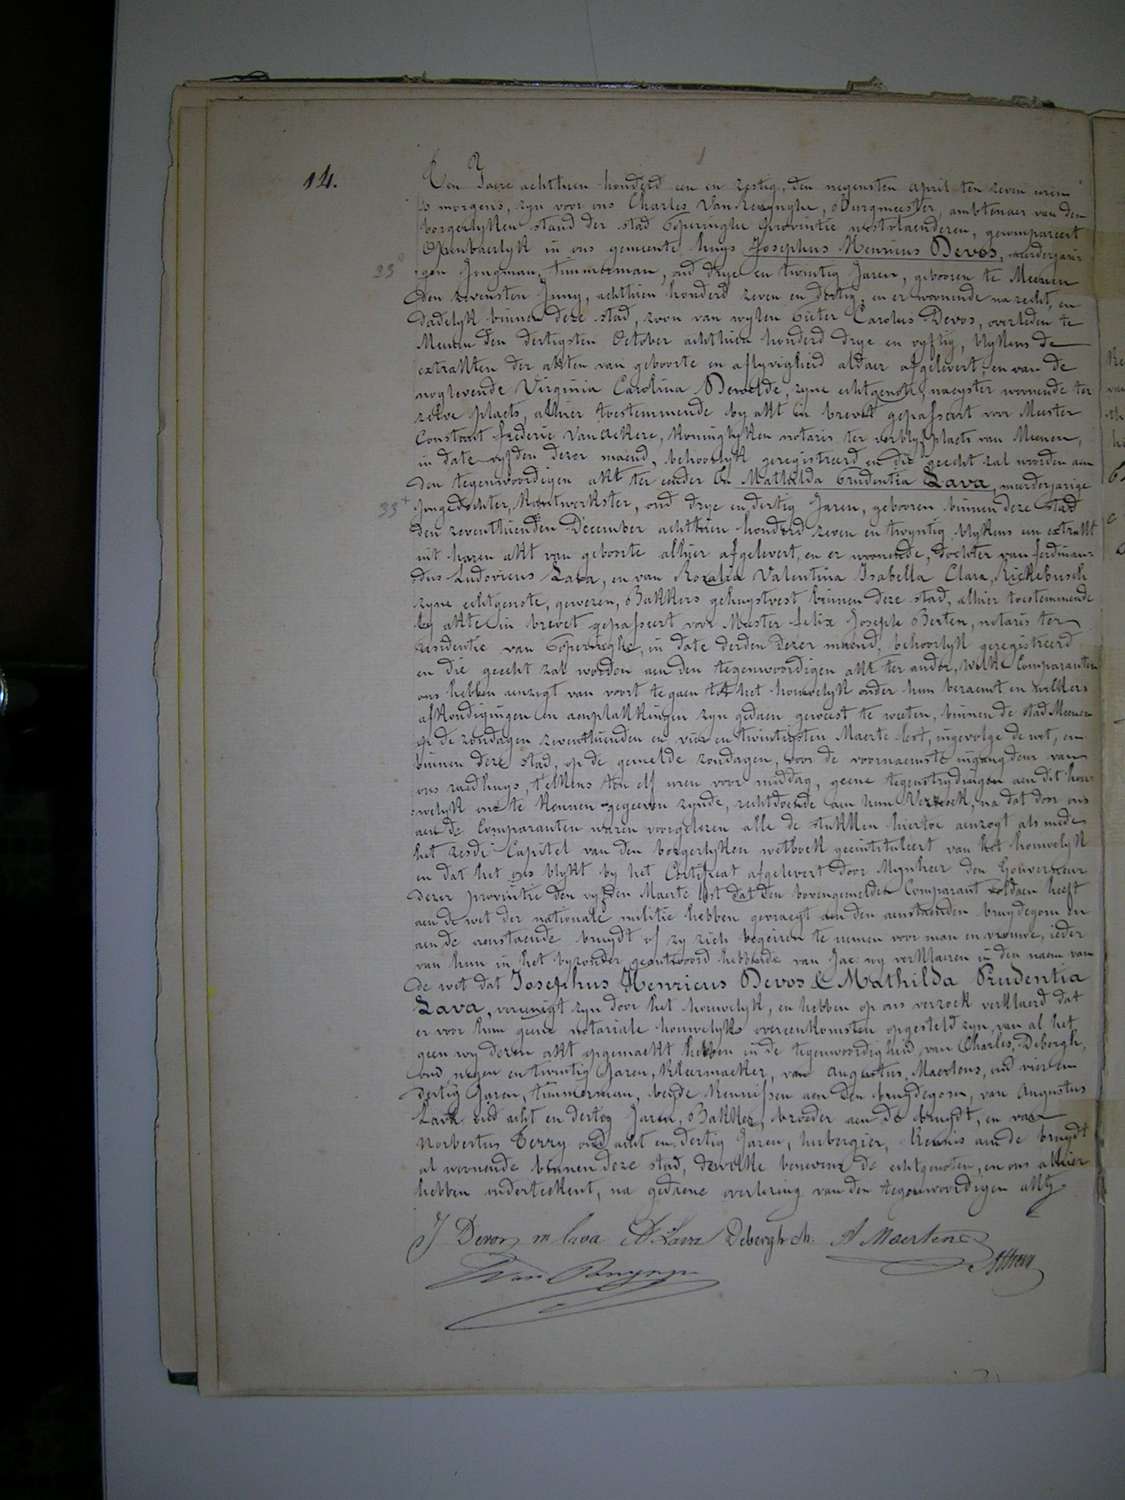 14.
Den Jaere achttien honderd een en zestig, den negensten april ten zeven uren
's morgens, zyn voor ons Charles Van Renynghe, Burgmeester, ambtenaer van den
borgerlyken stand der stad Poperinghe Provintie westvlaenderen, gecompareert
Openbaerlyk in ons gemeente huys Josephus Henricus Devos, meerderjari-
gen Jongman, timmerman, oud drye en twintig Jaren, gebooren te Meenen
den zevensten Juny, achttien honderd zeven en dertig, en er woonende na recht, en
dadelyk binnen deze stad, zoon van wylen Pieter Carolus Devos, overleden te
Meenen den dertigsten October achttien honderd drye en vyftig, blykens de
extrakten der akten van geboorte en aflyvigheid aldaer afgelevert, en van de
noglevende Virginia Carolina Dewelde, zyne echtgenote, naeyster woonende ter
zelve plaets, alhier toestemmende by akt in brevet gepasseert voor Meester
Constant Frederic Vanackere, koninglyken notaris ter verblyfplaets van Meenen,
in date vyfden dezer maend, behoorlyk geregistreerd en die geecht zal worden aen
den tegenwoordigen akt ter eender En Mathilda Prudentia Lava, meerderjarige
33 Jongedochter, Kantwerkster, oud drye en dertig Jaren, gebooren binnen deze stad
den zeventhienden December achttien honderd zeven en twyntig blykens een extrakt
uit haren akt van geboorte alhier afgelevert, en er woonende, dochter van ferdinan-
dus Ludovicus Lava, en van Rozalia Valentina Isabella Clara Rickebusch
zyne echtgenote, gewezen Bakkers gehuystvest binnen deze stad, alhier toestemmende
by akte in brevet gepasseert voor Meester felix Joseph Berten, notaris ter
residentie van Poperinghe, in date derden dezer maend, behoorlyk geregistreerd
en die geecht zal worden aen den tegenwoordigen akt ter ander, welke Comparanten
ons hebben aenzogt van voort te gaen tot het houwelyk onder hun beraemt en welkers
afkondigingen en aenplakkingen zyn gedaen geweest te weeten, binnen de stad Meenen
op de zondagen zeventhienden en vier en twintigsten Maerte lest, ingevolge de wet, en
binnen deze stad, op de gemelde zondagen, voor de voornaemste ingangdeur van
ons raedhuys, telkens ten elf uren voor middag, geene tegenstrydingen aen dit hou-
welyk ons te kennen gegeeven zynde, rechtdoende aen hun Verzoek, na dat door ons
aen de Comparanten waren voorgelezen alle de stukken hiertoe aenzogt als mede
het zesde Capitel van den borgerlyken wetboek geeintituleert van het houwelyk
en dat het ons blykt by het Certificat afgelevert door Mynheer den Gouverneur
dezer provintie den vyfden Maerte lest dat den bovengemelden Comparant voldaen heeft
aen de wet der nationale militie hebben gevraegt aen den aenstaenden bruydegom en
aen de aenstaende bruydt of zy zich begeiren te nemen voor man en vrouwe, ieder
van hun in het byzonder geantwoord hebbende van Ja: wy verklaeren in den naem van
de wet dat Josephus Henricus Devos & Mathilda Prudentia
Lava, vereenigt zyn door het houwelyk, en hebben op ons verzoek verklaerd dat
er voor hun geene notariale houwelyks overeenkomsten opgesteld zyn, van al het
geen wy dezen akt opgemaekt hebben in de tegenwoordigheid van Charles Debergh,
oud negen en twintig Jaren, kleermaeker, van augustus Maertens, oud vier en
dertig Jaren, timmerman, beyde kennissen aen den bruydegom, van Augustus
Lava oud acht en dertig Jaren, Bakker, broeder aen de bruydt, en van
Norbertus Terry oud acht en dertig Jaren, herbergier, kennis aen de bruydt
al woonende binnen deze stad, dewelke benevens de echtgenoten, en ons alhier
hebben onderteekent, na gedaene overlezing van den tegenwoordigen akt.
J Devos m lava A Lava Debergh ch. A Maertens
Van Renynge